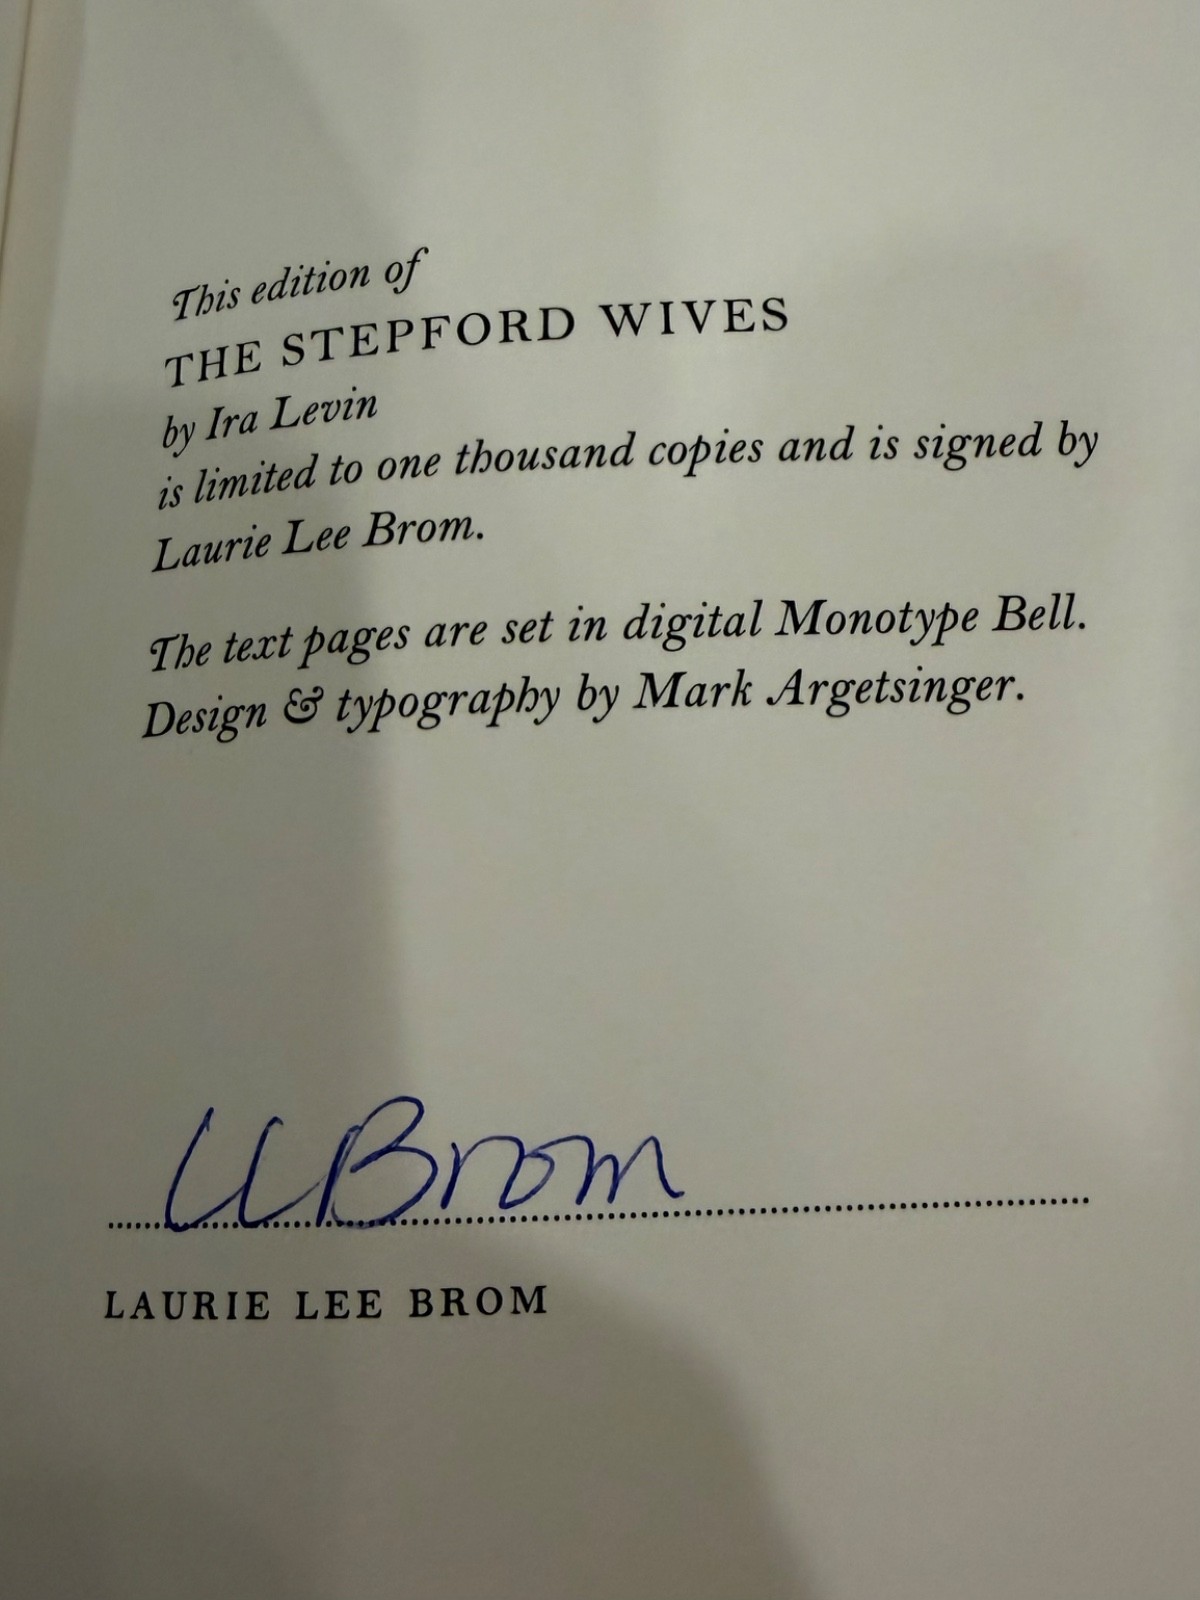 This edition of
THE STEPFORD WIVES
by Ira Levin
is limited to one thousand copies and is signed by
Laurie Lee Brom.
The text pages are set in digital Monotype Bell.
Design & typography by Mark Argetsinger.
LLBrom
LAURIE LEE BROM